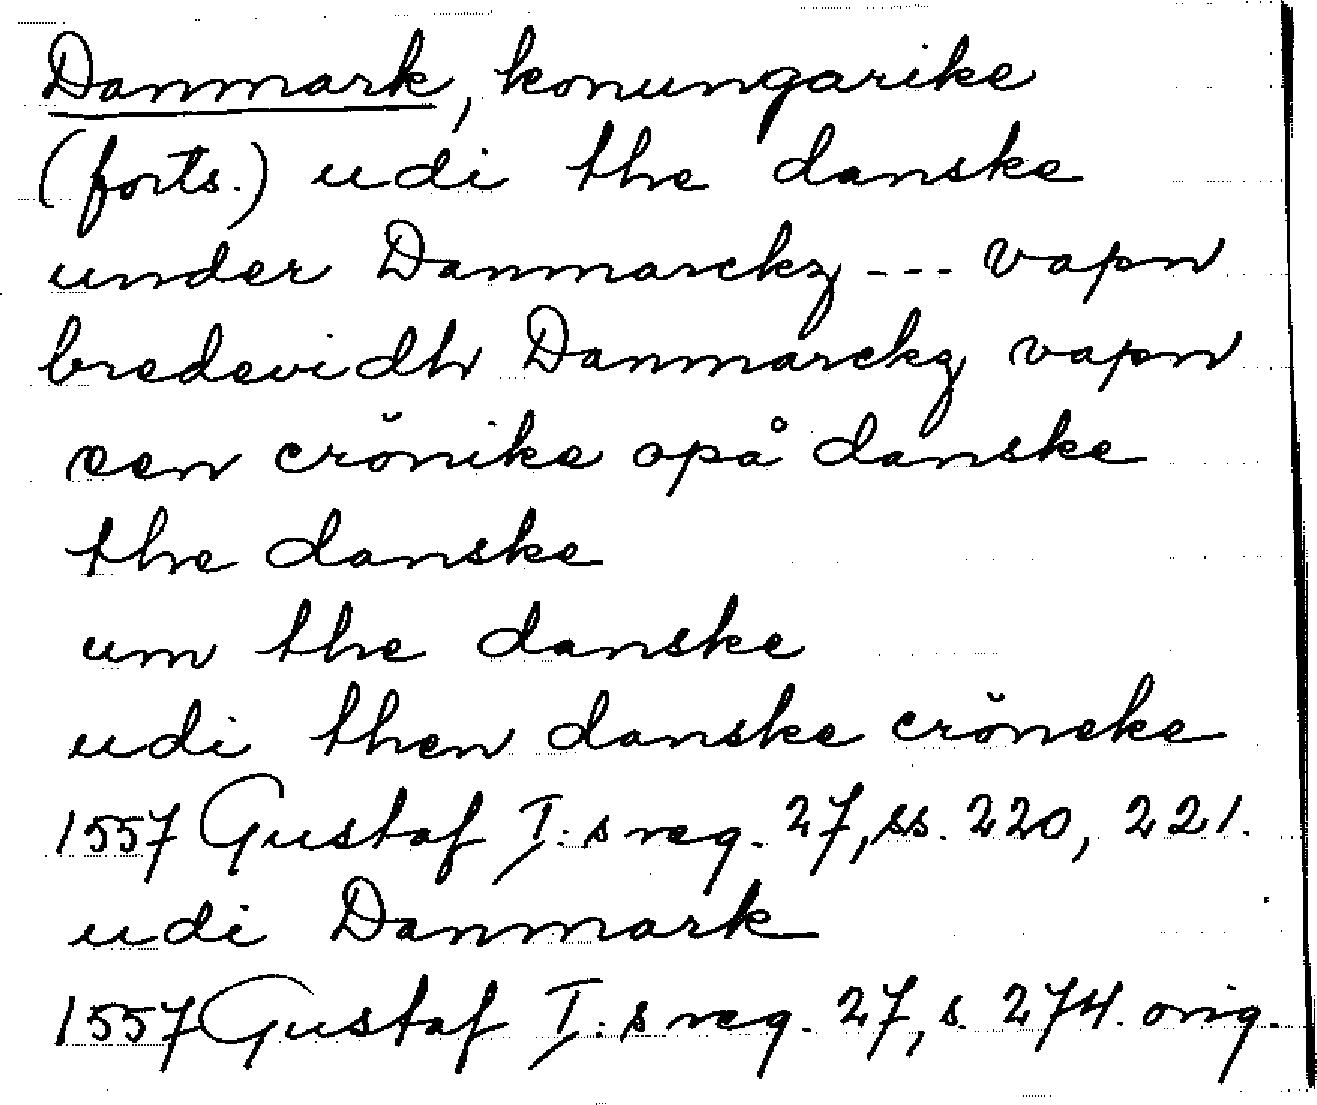 Danmark, konungarike
(forts.) udi the danske
under Danmarckz --- vapn
bredevidh Danmarckz vapn
een crŏnike opå danske
the danske
um the danske
udi then danske crŏneke
1557 Gustaf I:s reg. 27, ss. 220, 221.
udi Danmark
1557 Gustaf I:s reg. 27, s. 274. orig.